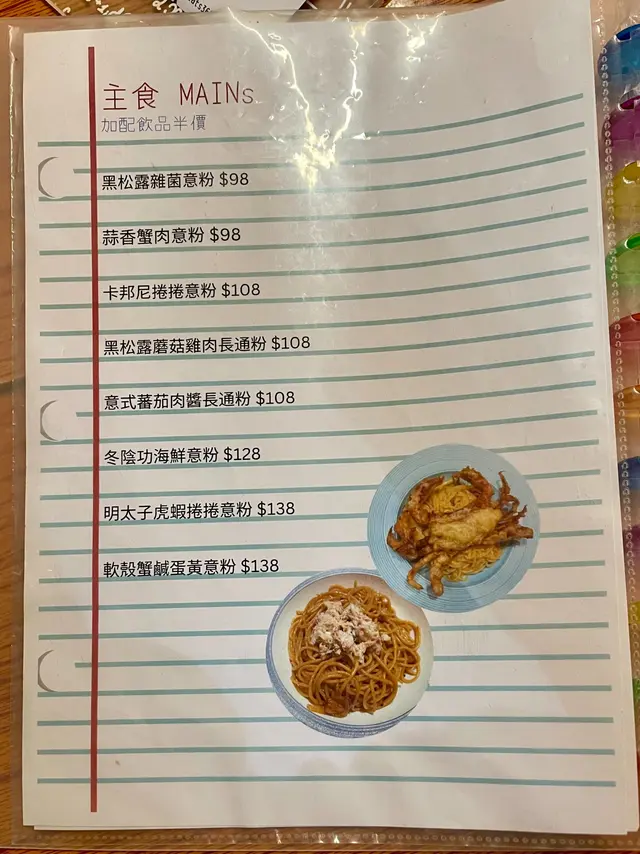 主食 MAINs
加配飲品半價
黑松露雜菌意粉 $98
蒜香蟹肉意粉 $98
卡邦尼捲捲意粉 $108
黑松露蘑菇雞肉長通粉 $108
意式蕃茄肉醬長通粉 $108
冬陰功海鮮意粉 $128
明太子虎蝦捲捲意粉 $138
軟殼蟹鹹蛋黃意粉 $138